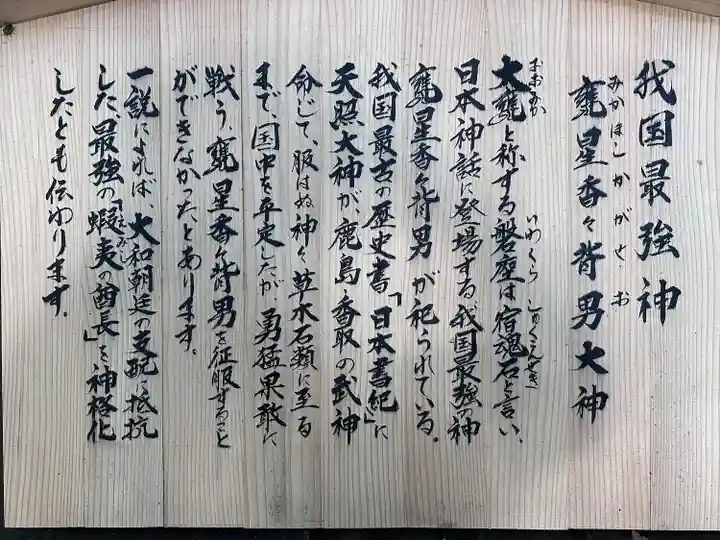 我国最強神
みかほしかがせお
甕星香々背男大神
おおみか いわくら しゅくこんせき
大甕と称する磐座は宿魂石と言い、
日本神話に登場する我国最強の神
甕星香々背男が祀られている。
我国最古の歴史書「日本書紀」に
天照大神が、鹿島・香取の武神
命じて、服はぬ神々草木石類に至る
まで、国中を平定したが、勇猛果敢に
戦う、甕星香々背男を征服すること
ができなかったとあります。
一説によれば、大和朝廷の支配に抵抗
えみし
した、最強の「蝦夷の酋長」を神格化
したとも伝わります。